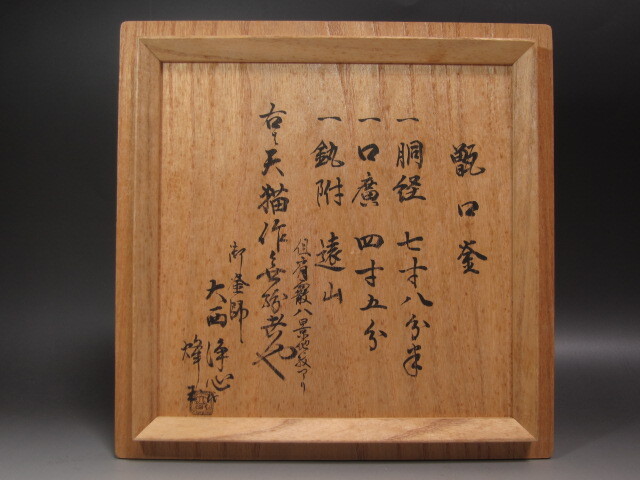 甑口釜
一胴径 七寸八分半
一口廣 四寸五分
一鈕附 遠山
但有霰八景地紋アリ
右ハ天猫作無紛者也
御釜師
大西浄心